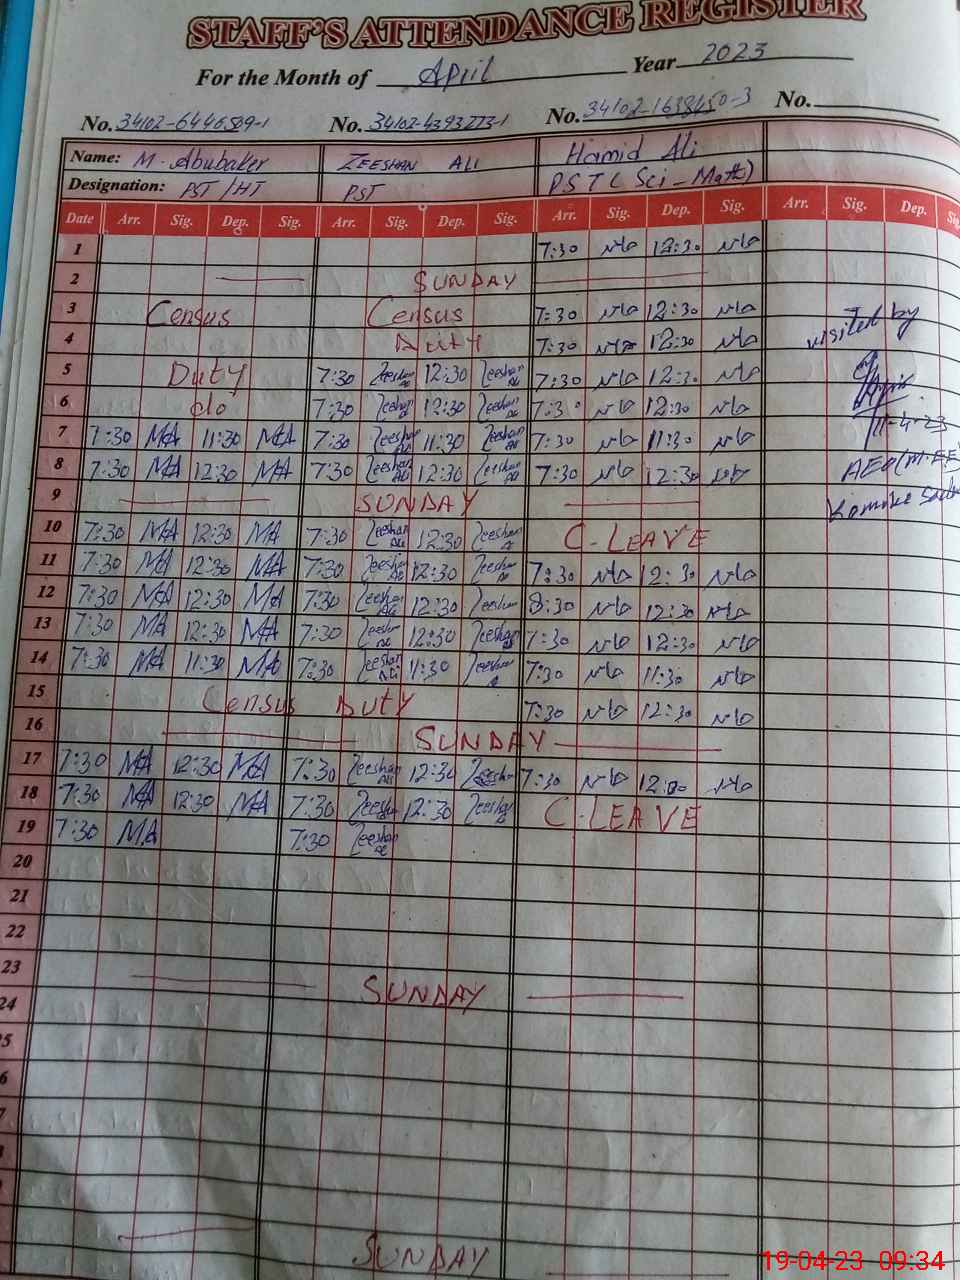 STAFF'S ATTENDANCE REGISTER
For the Month of April Year 2023
No. 34102-6446509-1 No. 34102-4393273-1 No. 34102-1638450-3 No.
Name: M. Abubaker ZEESHAN ALI Hamid Ali
Designation: PST/HT PST PST (Sci-Math)
Date Arr. Sig. Dep. Sig. Arr. Sig. Dep. Sig. Arr. Sig. Dep. Sig. Arr. Sig. Dep. Sig.
1 7:30 12:30
2 SUNDAY
3 Census Census 7:30 12:30 visited by
4 Duty 7:30 12:30
5 Duty 7:30 Zeeshan Ali 12:30 Zeeshan Ali 7:30 12:30
6 do 7:30 Zeeshan Ali 12:30 Zeeshan Ali 7:30 12:30
7 7:30 MA 11:30 MA 7:30 Zeeshan Ali 11:30 Zeeshan Ali 7:30 11:30 11-4-23
8 7:30 MA 12:30 MA 7:30 Zeeshan Ali 12:30 Zeeshan Ali 7:30 12:30 AEO (M-EE)
9 SUNDAY Kamoke
10 7:30 MA 12:30 MA 7:30 Zeeshan Ali 12:30 Zeeshan C-LEAVE
11 7:30 MA 12:30 MA 7:30 Zeeshan Ali 12:30 Zeeshan 7:30 12:30
12 7:30 MA 12:30 MA 7:30 Zeeshan Ali 12:30 Zeeshan 8:30 12:30
13 7:30 MA 12:30 MA 7:30 Zeeshan 12:30 Zeeshan 7:30 12:30
14 7:30 MA 11:30 MA 7:30 Zeeshan Ali 11:30 Zeeshan 7:30 11:30
15 Census Duty 7:30 12:30
16 SUNDAY
17 7:30 MA 12:30 MA 7:30 Zeeshan Ali 12:30 Zeeshan 7:30
18 7:30 MA 12:30 MA 7:30 Zeeshan 12:30 Zeeshan C-LEAVE
19 7:30 MA 7:30 Zeeshan
20
21
22
23 SUNDAY
24
5
6
7
SUNDAY
19-04-23 09:34